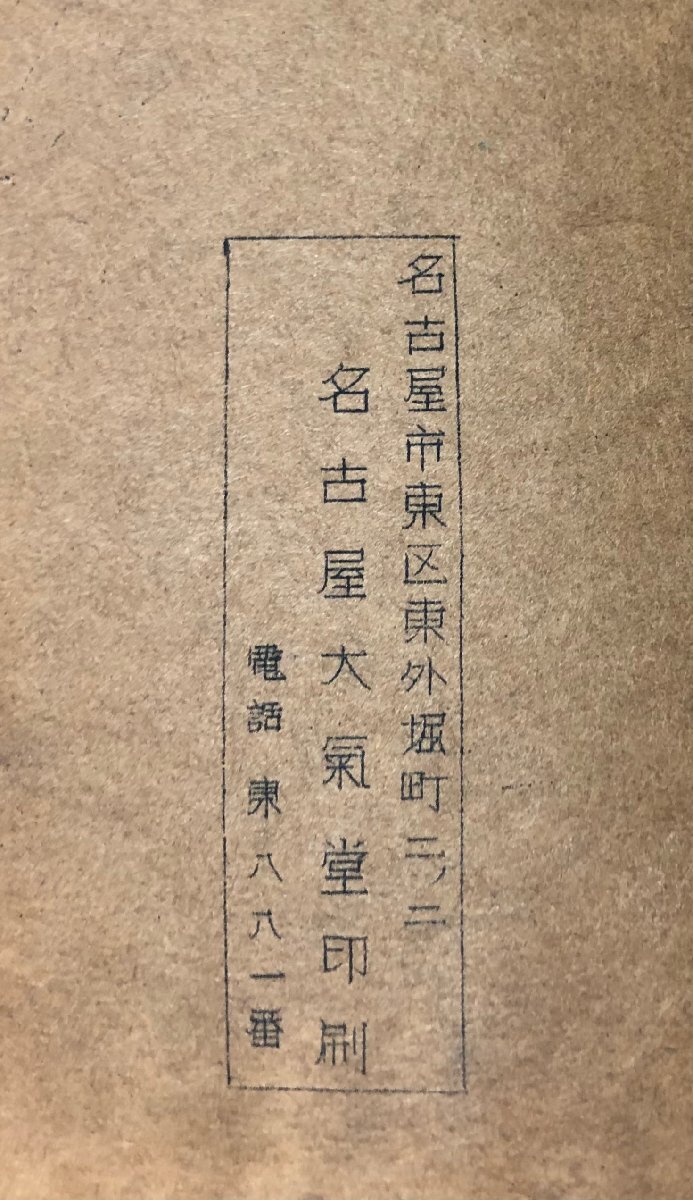 名古屋市東区東外堀町二ノ二
名古屋大氣堂印刷
電話東八八一番